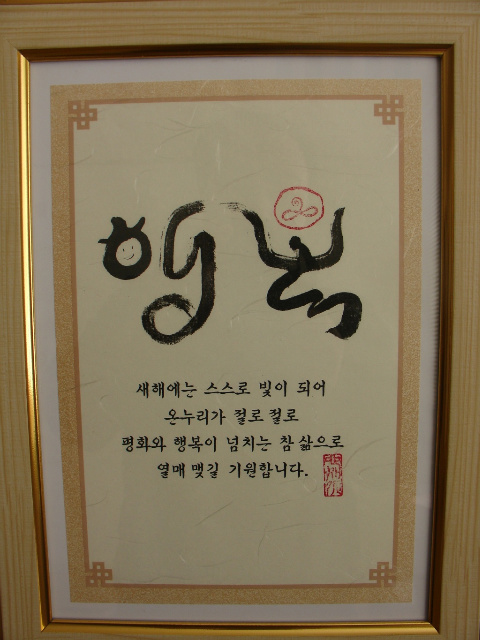 행복
새해에는 스스로 빛이 되어
온누리가 절로 절로
평화와 행복이 넘치는 참 삶으로
열매 맺길 기원합니다.